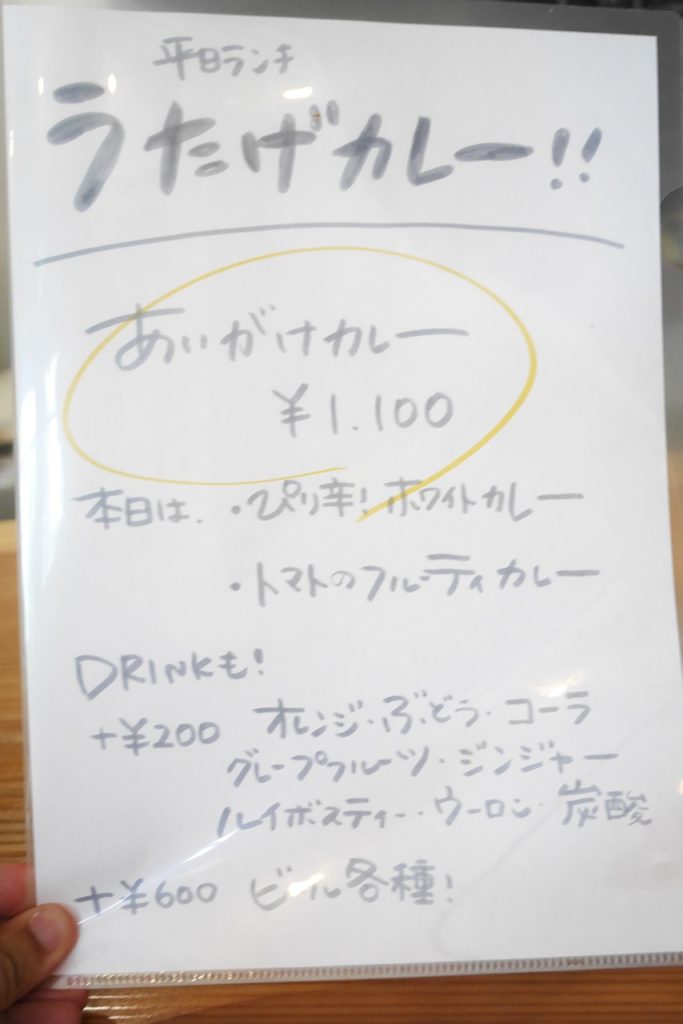 平日ランチ
うたげカレー!!
あいがけカレー
¥1.100
本日は. ・ぴり辛! ホワイトカレー
・トマトのフルーティカレー
DRINKも!
+¥200 オレンジ・ぶどう・コーラ
グレープフルーツ・ジンジャー
ルイボスティー・ウーロン・炭酸
+¥600 ビール各種!